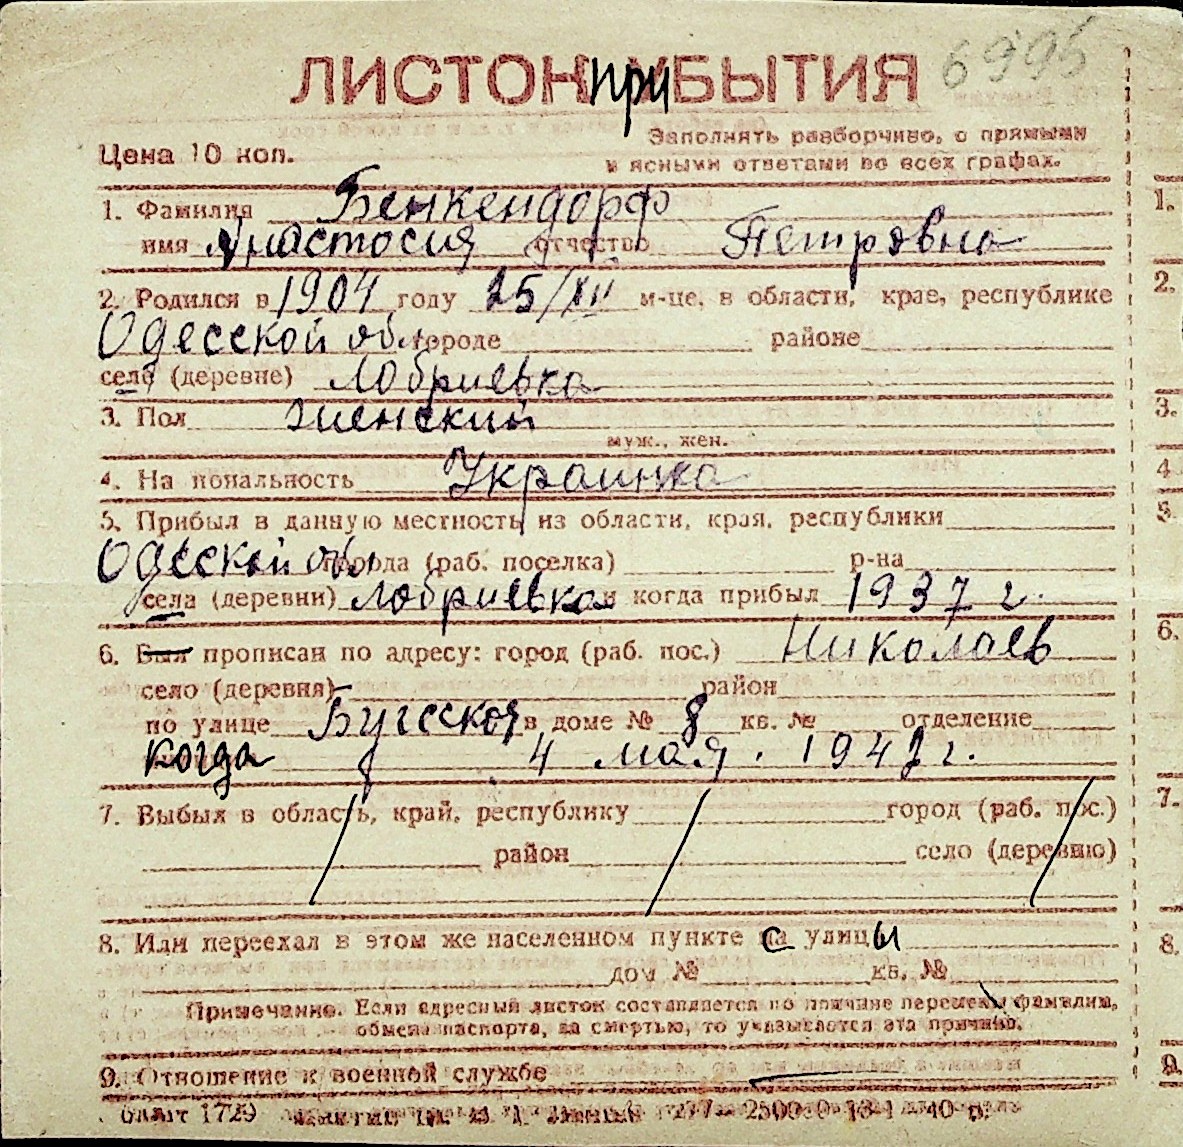 ЛИСТОК ПРИБЫТИЯ 6995
Заполнять разборчиво, с прямыми
и ясными ответами во всех графах.
Цена 10 коп.
1. Фамилия Бенкендорф
имя Анастосия отчество Петровна
2. Родился в 1904 году 25/XII м-це, в области, крае, республике
Одесской обл. городе районе
селе (деревне) Лобриевка
3. Пол женский
муж., жен.
4. Национальность Украинка
5. Прибыл в данную местность из области, края, республики
Одесской обл города (раб. поселка) р-на
села (деревни) Лобриевка и когда прибыл 1937 г.
6. Был прописан по адресу: город (раб. пос.) Николаев
село (деревня) район
по улице Бугсской в доме № 8 кв. № отделение
когда 4 мая. 1942 г.
7. Выбыл в область, край, республику город (раб. пос.)
район село (деревню)
8. Или переехал в этом же населенном пункте с улицы
дом № кв. №
Примечание. Если адресный листок составляется по причине перемены фамилии,
обмена паспорта, за смертью, то указывается эта причина.
9. Отношение к военной службе
1.
2.
3.
4
5.
6.
7.
8.
9.